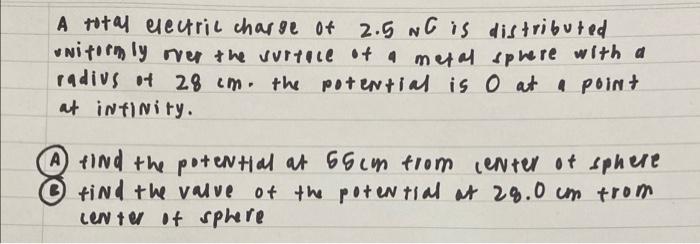 A total electric charge of 2.5 NC is distributed
uniformly over the surface of a metal sphere with a
radius of 28 cm. the potential is 0 at a point
at infinity.
A find the potential at 55cm from center of sphere
B find the valve of the potential at 28.0 cm from
center of sphere